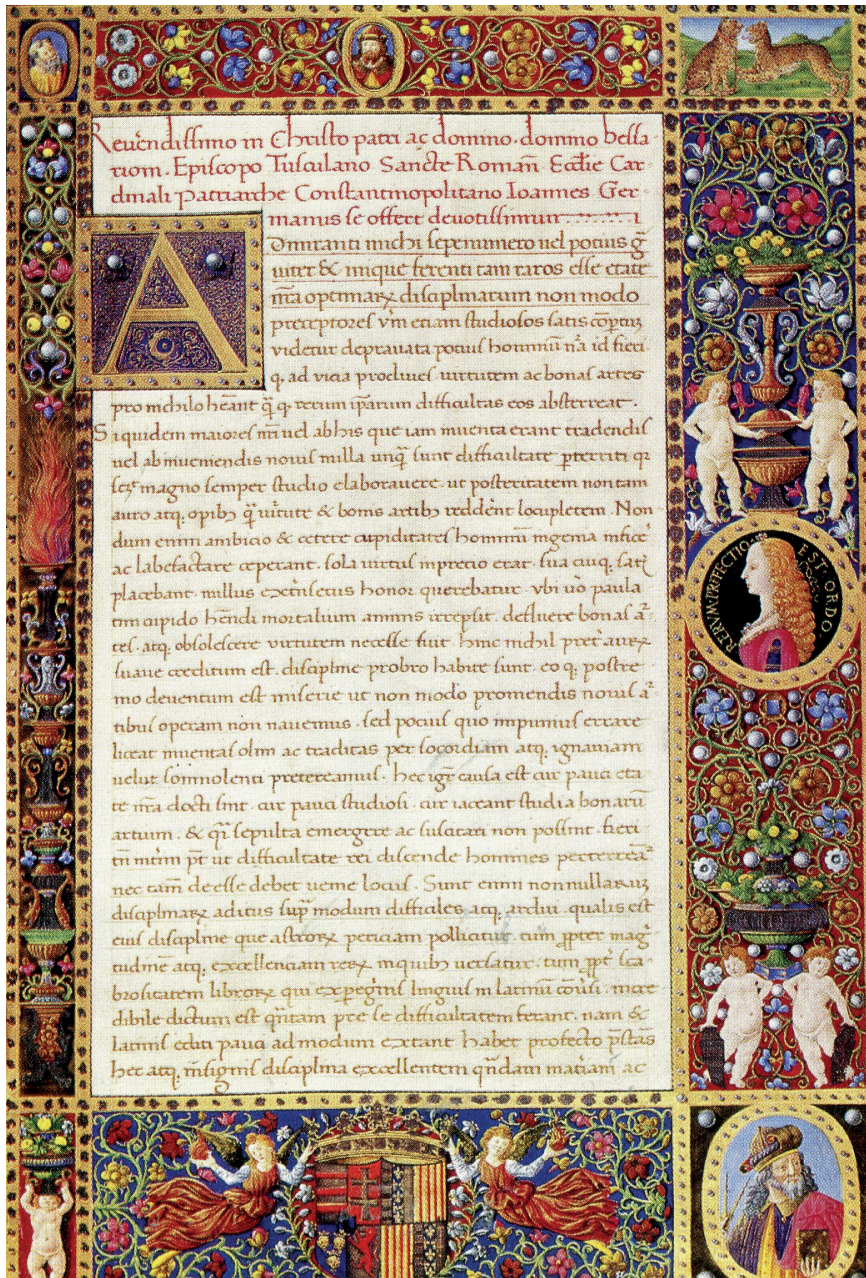 Reuerendissimo in Christo patri ac domino. domino bessa
riom. Episcopo Tusculano Sancte Romañ. Ecclie Car
dinali Patriarche Constantinopolitano Ioannes Ger
manus se offert deuotissimum
A
Dmiranti michi sepenumero uel potius g̃
uiter & inique ferenti tam raros esse etate
nr̃a optimaꝝ disciplinarum non modo
preceptores vm̃ etiam studiosos satis
videtur deprauata potius hominũ nã id fieri.
q, ad vicia procliues uirtutem ac bonas artes
pro nichilo heãnt q̃ q rerum ipãrum difficultas eos absterreat.
Siquidem maiores nr̃i uel ab his que iam inuenta erant tradendis
uel ab inueniendis nouis nulla unq̃ sunt difficultate pterriti qr
magno semper studio elaborauere. ut posteritatem non tam
auro atq, opibꝫ q̃ uirtute & bonis artibꝫ reddent locupletem. Non
dum enim ambicio & cetere cupiditates hominũ ingenia
ac labefactare ceperant. sola uirtus in precio erat. sua cuiq, satis
placebant. nullus extrinsecus honor querebatur. vbi uõ paula
tim cupido hendi mortalium animis irrepsit. defluere bonas ã
tes. atq, obsolescere virtutem necesse fuit. hinc nichil preter aureꝝ
suaue creditum est. discipline probro habite sunt. eo q, postre
mo deuentum est miserie ut non modo promendis nouis ã
tibus operam non nauemus. sed pocius quo impunius errare
liceat inuentas olim ac traditas per socordiam atq, ignauiam
uelut somnolenti pretereamus. hec igr̃ causa est cur pauci eta
te nr̃a docti sint. cur pauci studiosi. cur iaceant studia bonarũ
artium. & q̃i sepulta emergere ac suscitari non possint. fieri
tñ pt̃ ut difficultate rei discende homines perterreã
nec tam deesse debet uenie locus. Sunt enim nonnullarum
disciplinaꝝ aditus sup̃ modum difficiles atq, ardui. qualis est
eius discipline que astroꝝ periciam pollicitur. tum ꝓpter mag
tudinẽ atq, excellenciam reꝝ in quibus uersatur. tum ꝓpt̃ sca
brositatem libroꝝ qui ex peg̃nis linguis in latinũ incre
dibile dictum est q̃ntam pre se difficultatem ferant. nam &
latinis editi pauci admodum extant. habet profecto p̃stãs
hec atq, insignis disciplina excellentem q̃ndam mat̃iam ac
RERVM PERFECTIO EST ORDO